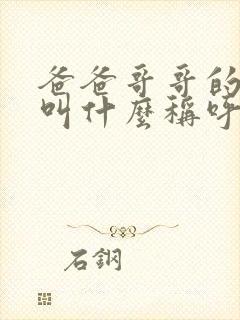 爸爸哥哥的
叫什麼稱呼
石鋼